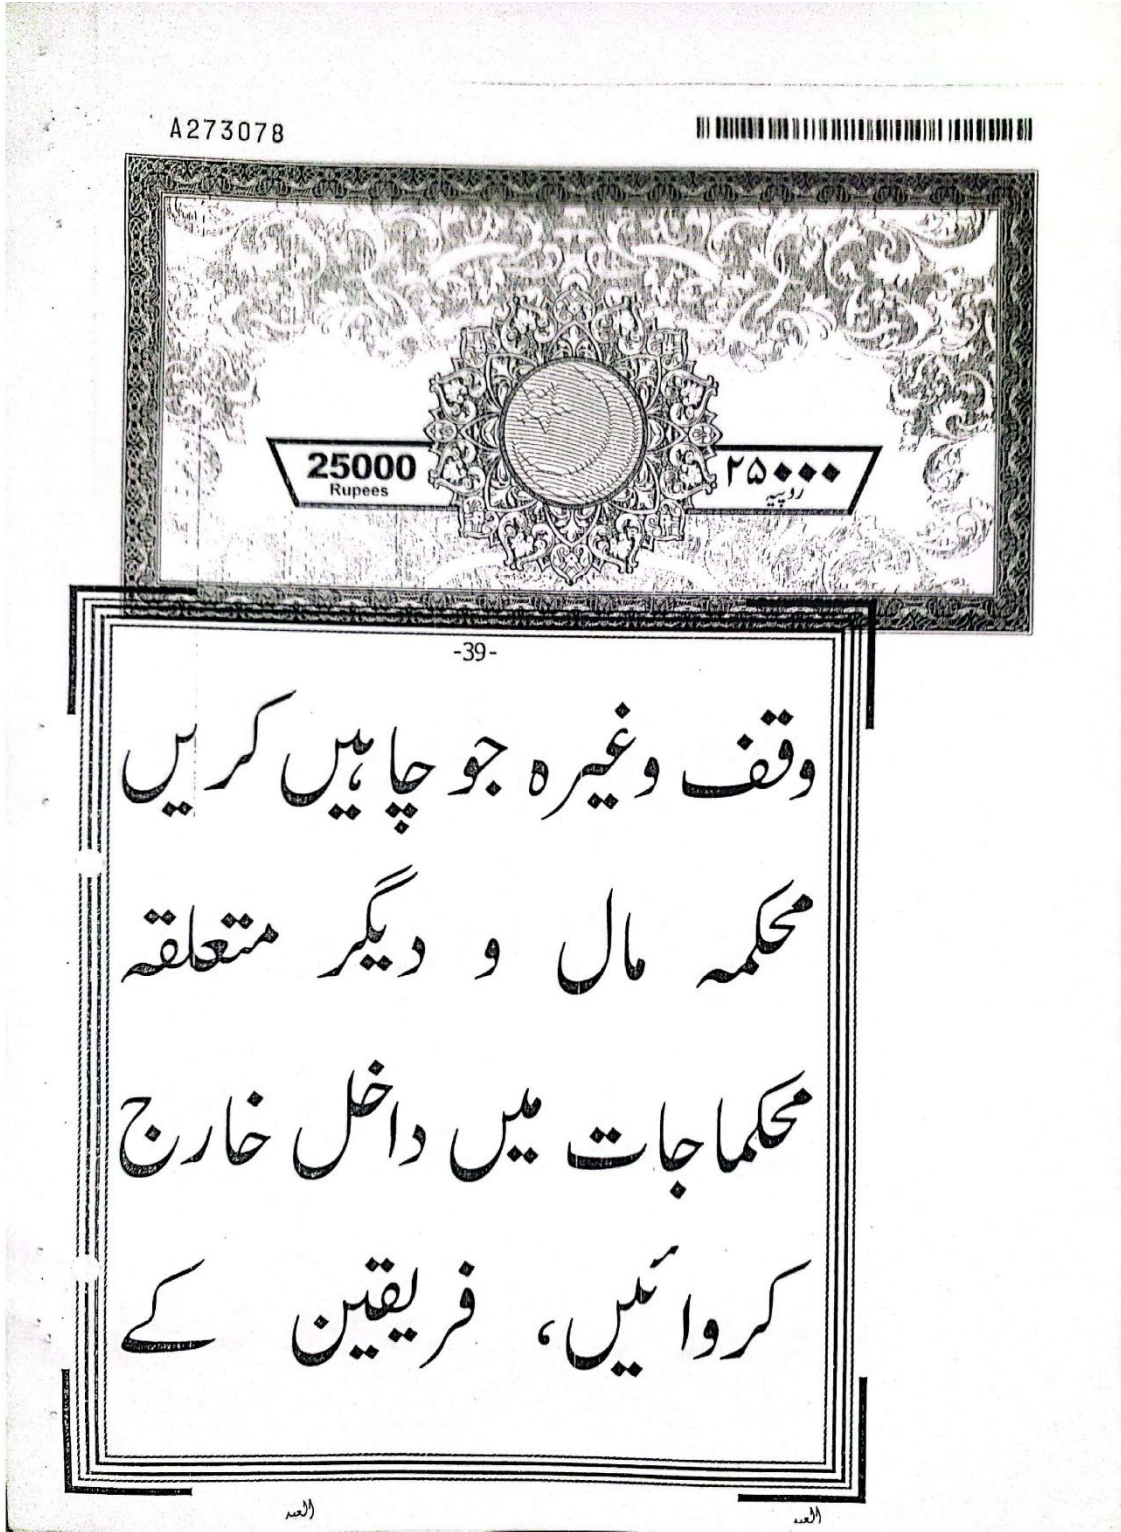 A273078
25000
Rupees
۲۵۰۰۰
روپیہ
-39-
وقف وغیرہ جو چاہیں کریں
محکمہ مال و دیگر متعلقہ
محکماجات میں داخل خارج
کروائیں، فریقین کے
العبد
العبد